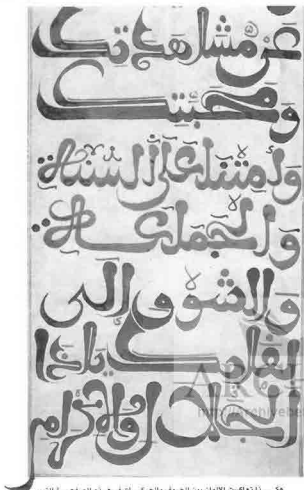 عَن مشاهدتك
ومحبتك
وأمتنا على السنة
والجماعة
والشوق إلى
لقائك ياذا
الجلال والإكرام